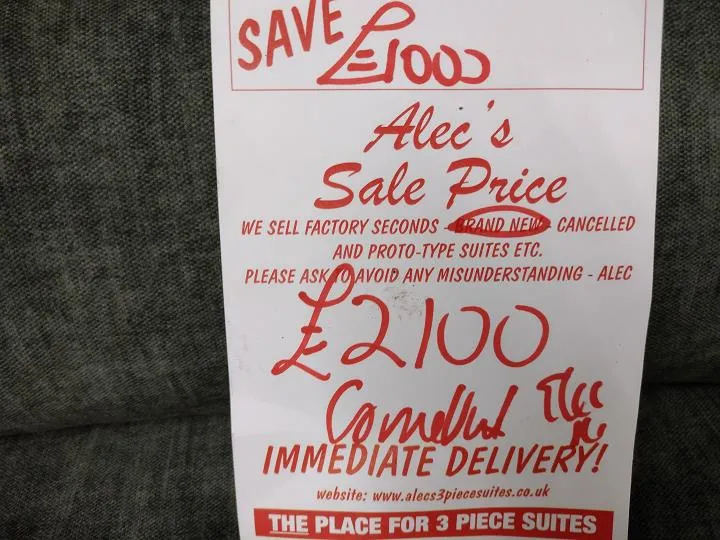 SAVE £1000
Alec's
Sale Price
WE SELL FACTORY SECONDS - BRAND NEW - CANCELLED
AND PROTO-TYPE SUITES ETC.
PLEASE ASK TO AVOID ANY MISUNDERSTANDING - ALEC
£2100
IMMEDIATE DELIVERY!
website: www.alecs3piecesuites.co.uk
THE PLACE FOR 3 PIECE SUITES